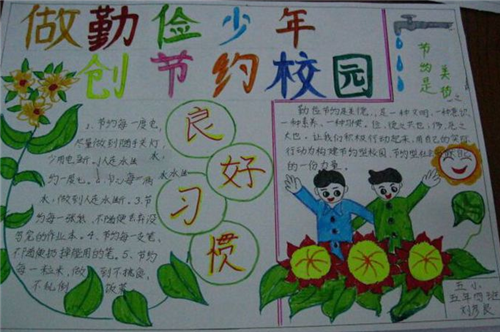 做勤俭少年
创节约校园
节约是
美德
良
好
习
惯
1、节约每一度电,
尽量做到随手关灯
约一度电。
水,做到人走水断。3、节
约每一张纸,不随便丢弃没
写完的作业本。4、节约每一支笔,
不随便扔掉能用的笔。5、节约
每一粒米,做到不挑食,
不乱倒饭菜
勤俭节约是美德,是一种文明,一种意识
一种素养,一种
大也。让我们积极行动起来,用自己的实际
行动为构建节约型校园,节约型社会
的一份力量。
五小
五年四班